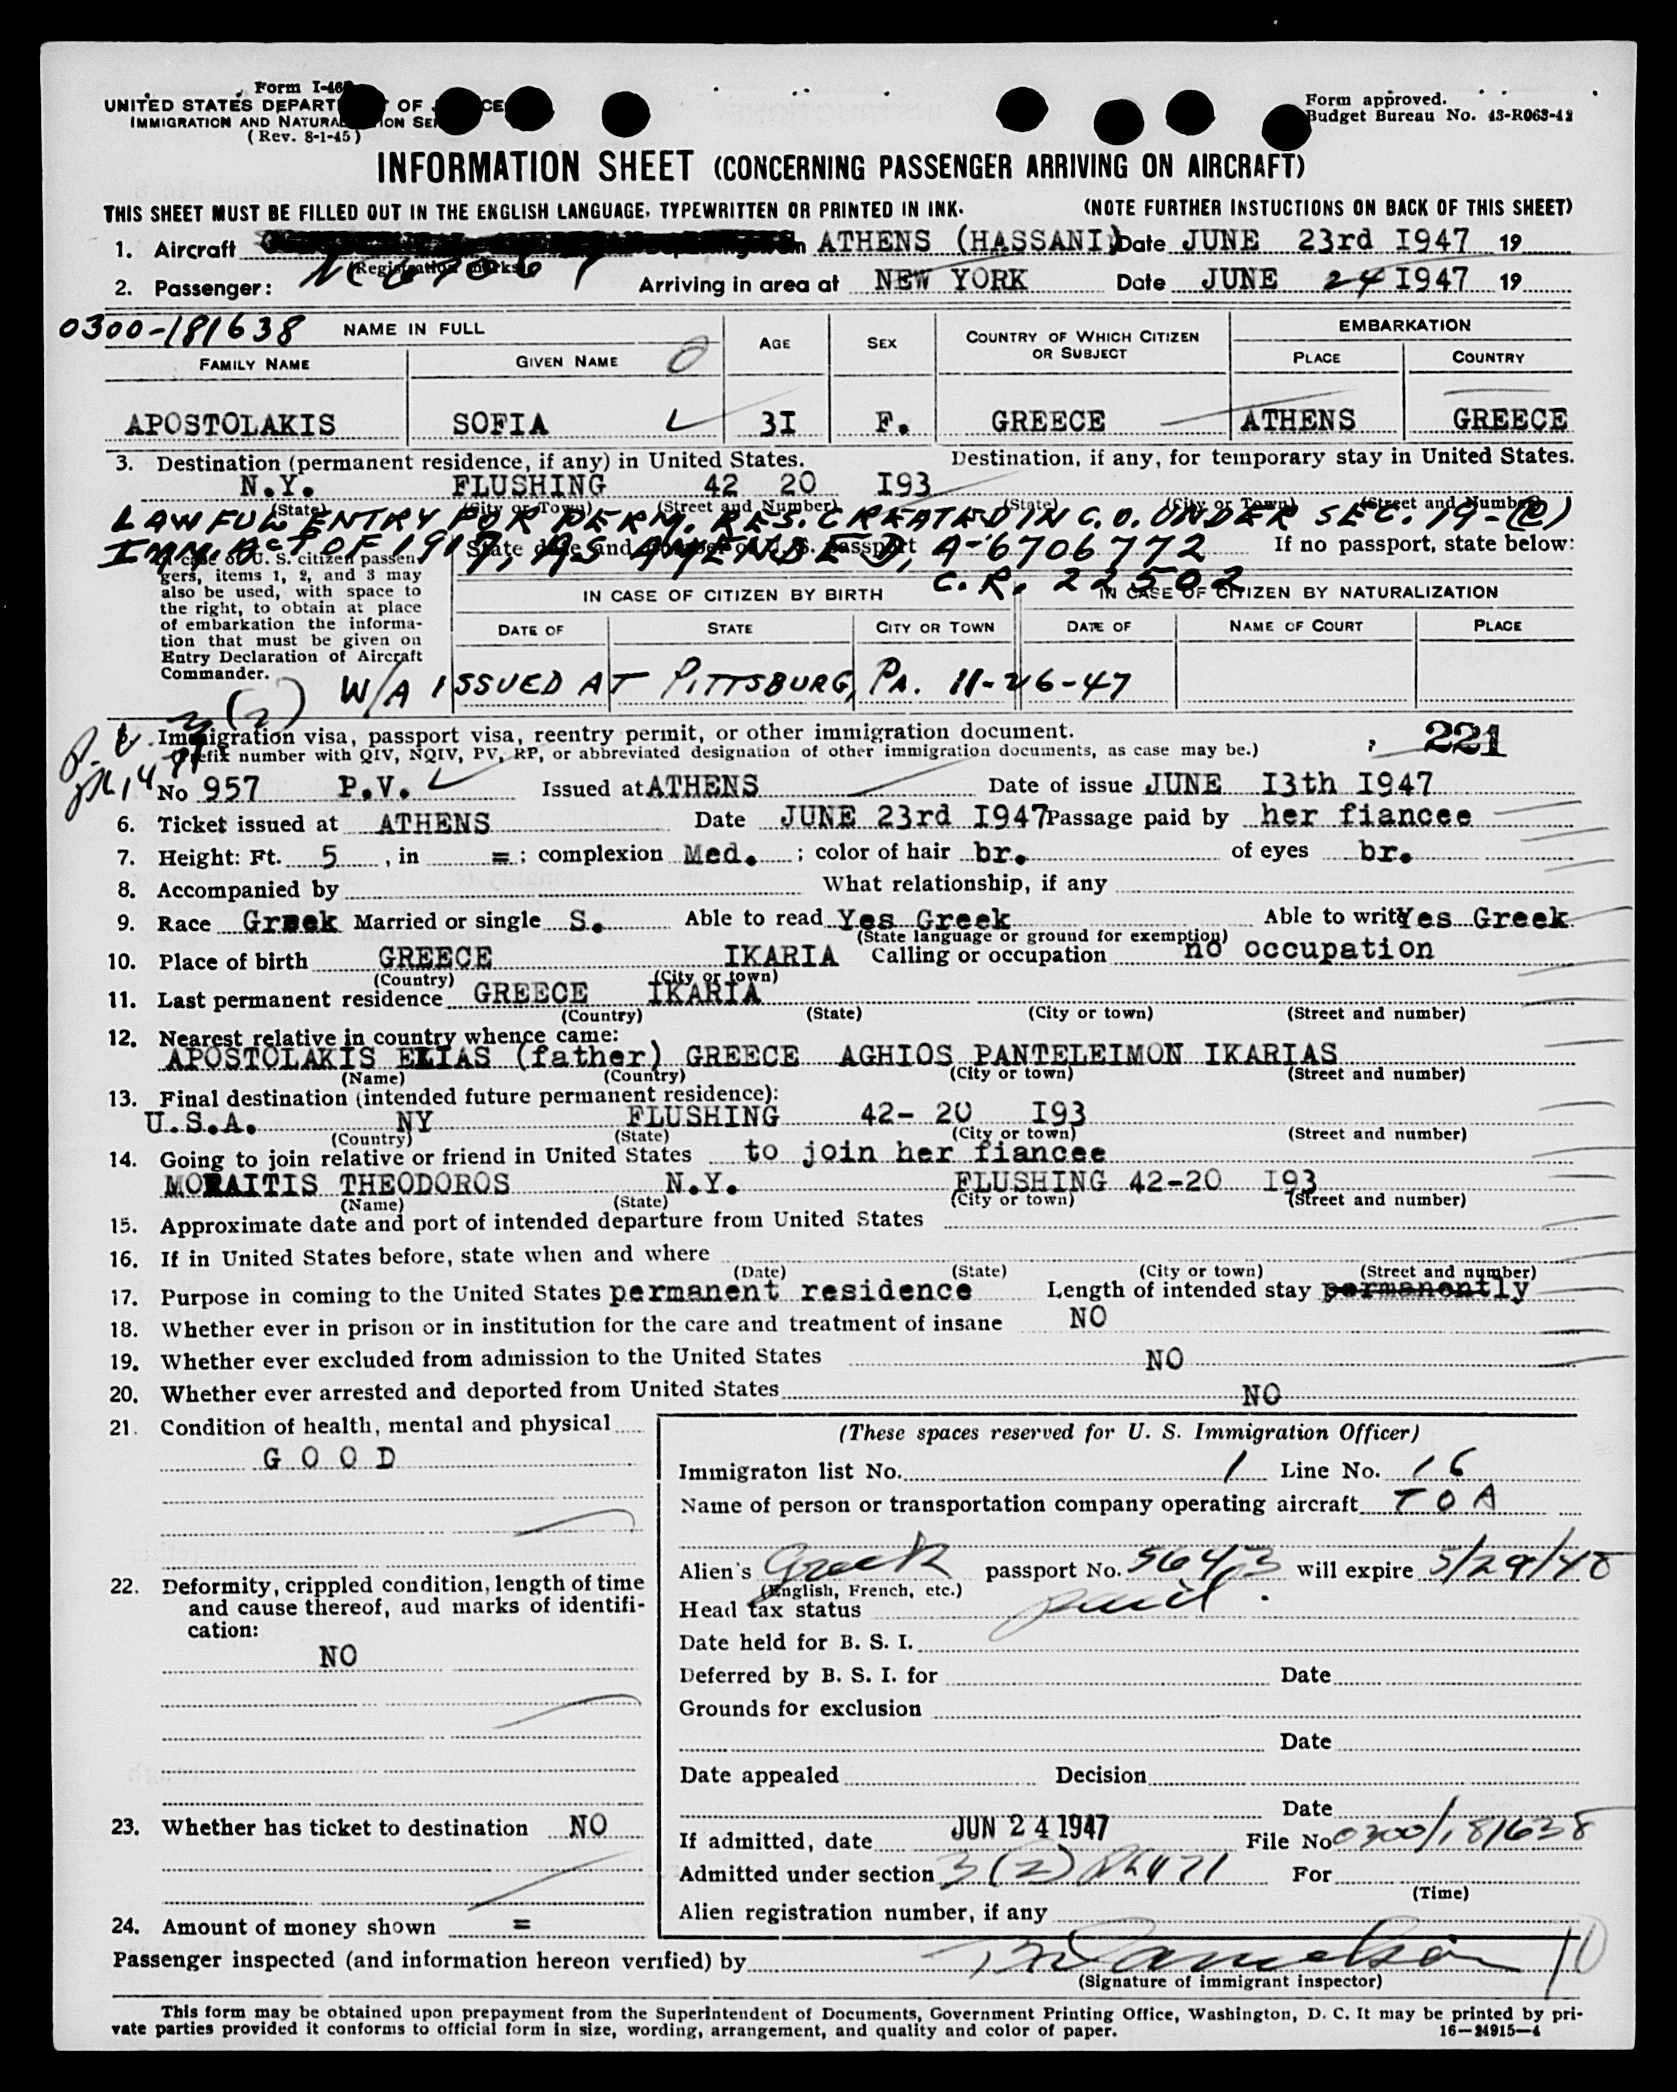 Form I-46
UNITED STATES DEPART OF CE
IMMIGRATION AND NATURA ION SE
(Rev. 8-1-45)
Form approved.
Budget Bureau No. 43-R063-42
INFORMATION SHEET (CONCERNING PASSENGER ARRIVING ON AIRCRAFT)
THIS SHEET MUST BE FILLED OUT IN THE ENGLISH LANGUAGE, TYPEWRITTEN OR PRINTED IN INK. (NOTE FURTHER INSTUCTIONS ON BACK OF THIS SHEET)
1. Aircraft ATHENS (HASSANI) Date JUNE 23rd I947 19
(Registration marks)
2. Passenger: Arriving in area at NEW YORK Date JUNE 24 I947 19
0300-181638 NAME IN FULL AGE SEX COUNTRY OF WHICH CITIZEN OR SUBJECT EMBARKATION
FAMILY NAME GIVEN NAME PLACE COUNTRY
APOSTOLAKIS SOFIA 3I F. GREECE ATHENS GREECE
3. Destination (permanent residence, if any) in United States. Destination, if any, for temporary stay in United States.
N.Y. FLUSHING 42 20 I93
(State) (City or Town) (Street and Number) (State) (City or Town) (Street and Number)
LAWFUL ENTRY FOR PERM. RES. CREATED IN C.O. UNDER SEC. 19-(C)
IMM. ACT OF 1917, AS AMENDED, A-6706772 If no passport, state below:
C.R. 22502
In case of U. S. citizen passengers, items 1, 2, and 3 may
also be used, with space to
the right, to obtain at place
of embarkation the informa-
tion that must be given on
Entry Declaration of Aircraft
Commander.
IN CASE OF CITIZEN BY BIRTH IN CASE OF CITIZEN BY NATURALIZATION
DATE OF STATE CITY OR TOWN DATE OF NAME OF COURT PLACE
W/A ISSUED AT PITTSBURG, PA. 11-26-47
5. Immigration visa, passport visa, reentry permit, or other immigration document. 221
(Prefix number with QIV, NQIV, PV, RP, or abbreviated designation of other immigration documents, as case may be.)
No 957 P.V. Issued at ATHENS Date of issue JUNE I3th I947
6. Ticket issued at ATHENS Date JUNE 23rd I947 Passage paid by her fiancee
7. Height: Ft. 5 , in = ; complexion Med. ; color of hair br. of eyes br.
8. Accompanied by What relationship, if any
9. Race Greek Married or single S. Able to read Yes Greek Able to write Yes Greek
(State language or ground for exemption)
10. Place of birth GREECE IKARIA Calling or occupation no occupation
(Country) (City or town)
11. Last permanent residence GREECE IKARIA
(Country) (State) (City or town) (Street and number)
12. Nearest relative in country whence came:
APOSTOLAKIS ELIAS (father) GREECE AGHIOS PANTELEIMON IKARIAS
(Name) (Country) (City or town) (Street and number)
13. Final destination (intended future permanent residence):
U.S.A. NY FLUSHING 42- 20 I93
(Country) (State) (City or town) (Street and number)
14. Going to join relative or friend in United States to join her fiancee
MORAITIS THEODOROS N.Y. FLUSHING 42-20 I93
(Name) (State) (City or town) (Street and number)
15. Approximate date and port of intended departure from United States
16. If in United States before, state when and where
(Date) (State) (City or town) (Street and number)
17. Purpose in coming to the United States permanent residence Length of intended stay permanently
18. Whether ever in prison or in institution for the care and treatment of insane NO
19. Whether ever excluded from admission to the United States NO
20. Whether ever arrested and deported from United States NO
21. Condition of health, mental and physical
GOOD
22. Deformity, crippled condition, length of time
and cause thereof, aud marks of identifi-
cation:
NO
23. Whether has ticket to destination NO
24. Amount of money shown =
(These spaces reserved for U. S. Immigration Officer)
Immigraton list No. 1 Line No. 16
Name of person or transportation company operating aircraft TOA
Alien's Greek passport No. 56413 will expire 5/29/48
(English, French, etc.)
Head tax status paid.
Date held for B. S. I.
Deferred by B. S. I. for Date
Grounds for exclusion
Date
Date appealed Decision
Date
If admitted, date JUN 24 1947 File No 0300/181638
Admitted under section 3(2) For
(Time)
Alien registration number, if any
Passenger inspected (and information hereon verified) by
(Signature of immigrant inspector)
This form may be obtained upon prepayment from the Superintendent of Documents, Government Printing Office, Washington, D. C. It may be printed by pri-
vate parties provided it conforms to official form in size, wording, arrangement, and quality and color of paper. 16—24915-4